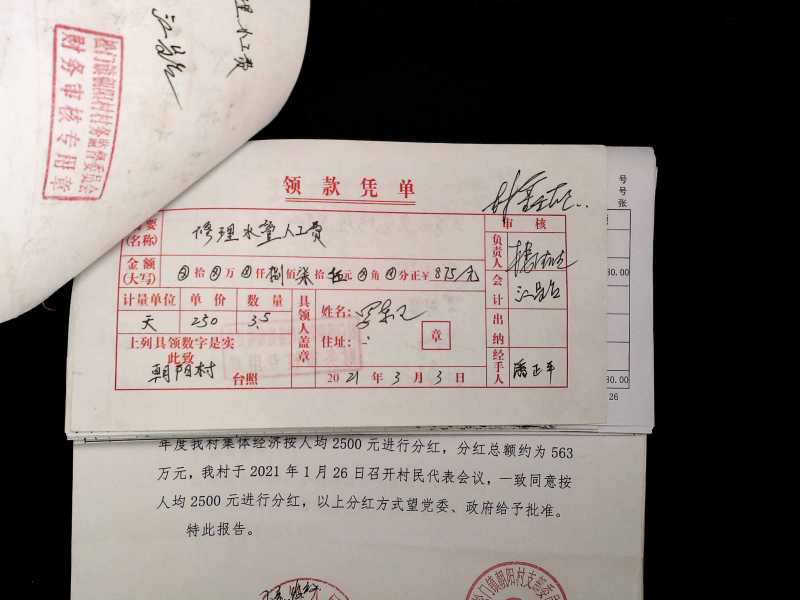 理水工费
江昌台
松门镇朝阳村村务监督委员会
财务审核专用章
领款凭单
号
号
张
摘要
(名称)
修理水管人工费
审核
金额
(大写)
⊗拾⊗万⊗仟捌佰柒拾伍元⊗角⊗分正¥875/元
负责人
会计
江昌台
计量单位 单价 数量
天 250 3.5
具领人盖章
姓名:
住址:
章
出纳
上列具领数字是实
此致
朝阳村 台照
2021年3月3日
经手人
潘正平
80.00
80.00
26
年度我村集体经济按人均2500元进行分红，分红总额约为563
万元，我村于2021年1月26日召开村民代表会议，一致同意按
人均2500元进行分红，以上分红方式望党委、政府给予批准。
特此报告。
松门镇朝阳村支部委员